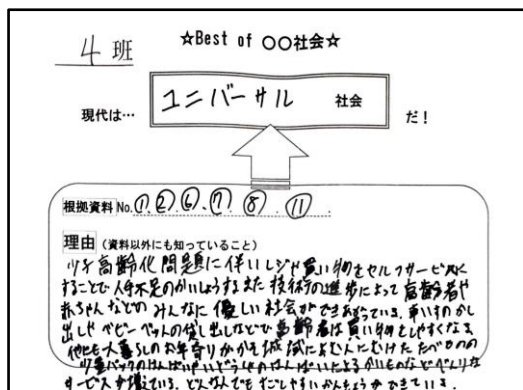 4班
☆Best of ○○社会☆
現代は… ユニバーサル 社会 だ！
根拠資料No. ① ② ⑥ ⑦ ⑧ ⑪
理由（資料以外にも知っていること）
少子高齢化問題に伴いレジや買い物をセルフサービス
することで人手不足のかいしょうするまた技術の進歩によって高齢者や
赤ちゃんなどのみんなに優しい社会ができあがっている。車いすのかし
出しやベビーベットの貸し出しなどで高齢者は買い物をしやすくなる
他にも人暮らしのお年寄り 地域によむ人にむけた
少量パックのはんばいや はんばいによる
サービスが増えている。どんな人でもすごしやすいかんきょうができている。